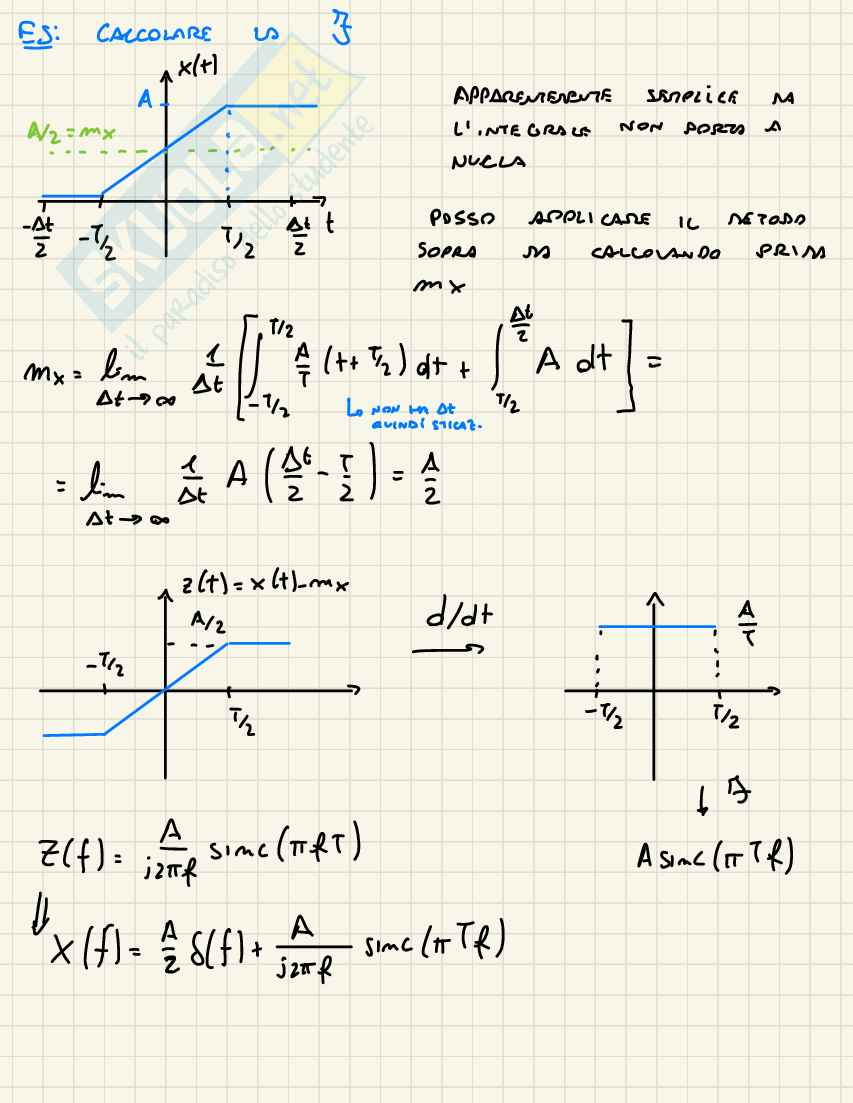 ES: CALCOLARE LA ℱ
x(t)
A
A/2 = mx
-Δt/2 -T/2 T/2 Δt/2 t
APPARENTEMENTE SEMPLICE MA
L'INTEGRALE NON PORTA A
NULLA
POSSO APPLICARE IL METODO
SOPRA MA CALCOLANDO PRIMA
mx
mx = lim Δt→∞ 1/Δt [ ∫_{-T/2}^{T/2} A/T (t + T/2) dt + ∫_{T/2}^{Δt/2} A dt ] =
↳ NON HA Δt
QUINDI
= lim Δt→∞ 1/Δt A ( Δt/2 - T/2 ) = A/2
z(t) = x(t) - mx
A/2
-T/2
T/2
d/dt
A/T
-T/2 T/2
↓ ℱ
Z(f) = A/(j2πf) sinc(πfT)
A sinc(πTf)
⇓
X(f) = A/2 δ(f) + A/(j2πf) sinc(πTf)
SKUOLA.net
il paradiso dello studente